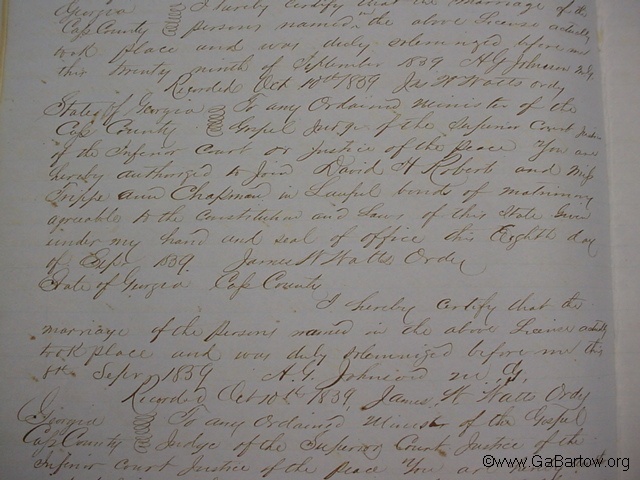 Georgia I hereby certify that the marriage of the
Cass County persons named in the above License actually
took place and was duly solemnized before me
this twenty ninth of September 1859 A G Johnson M G
Recorded Oct 10th 1859 Js W Watts Ordy
State of Georgia To any Ordained Minister of the
Cass County Gospel Judge of the Superior Court Justice
of the Inferior Court or Justice of the peace You are
hereby authorized to Join David H Roberts and Miss
Ann Chapman in Lawful bonds of matrimony
agreeable to the Constitution and Laws of this State Given
under my hand and seal of office this Eighth day
of Sept 1859. James W Watts Ordy
State of Georgia Cass County
I hereby certify that the
marriage of the persons named in the above License actually
took place and was duly solemnized before me this
8th Sept 1859 A. G. Johnson M. G.
Recorded Oct 10th 1859, James W Watts Ordy
Georgia To any Ordained Minister of the Gospel
Cass County Judge of the Superior Court Justice of the
Inferior Court Justice of the peace You are hereby
©www.GaBartow.org